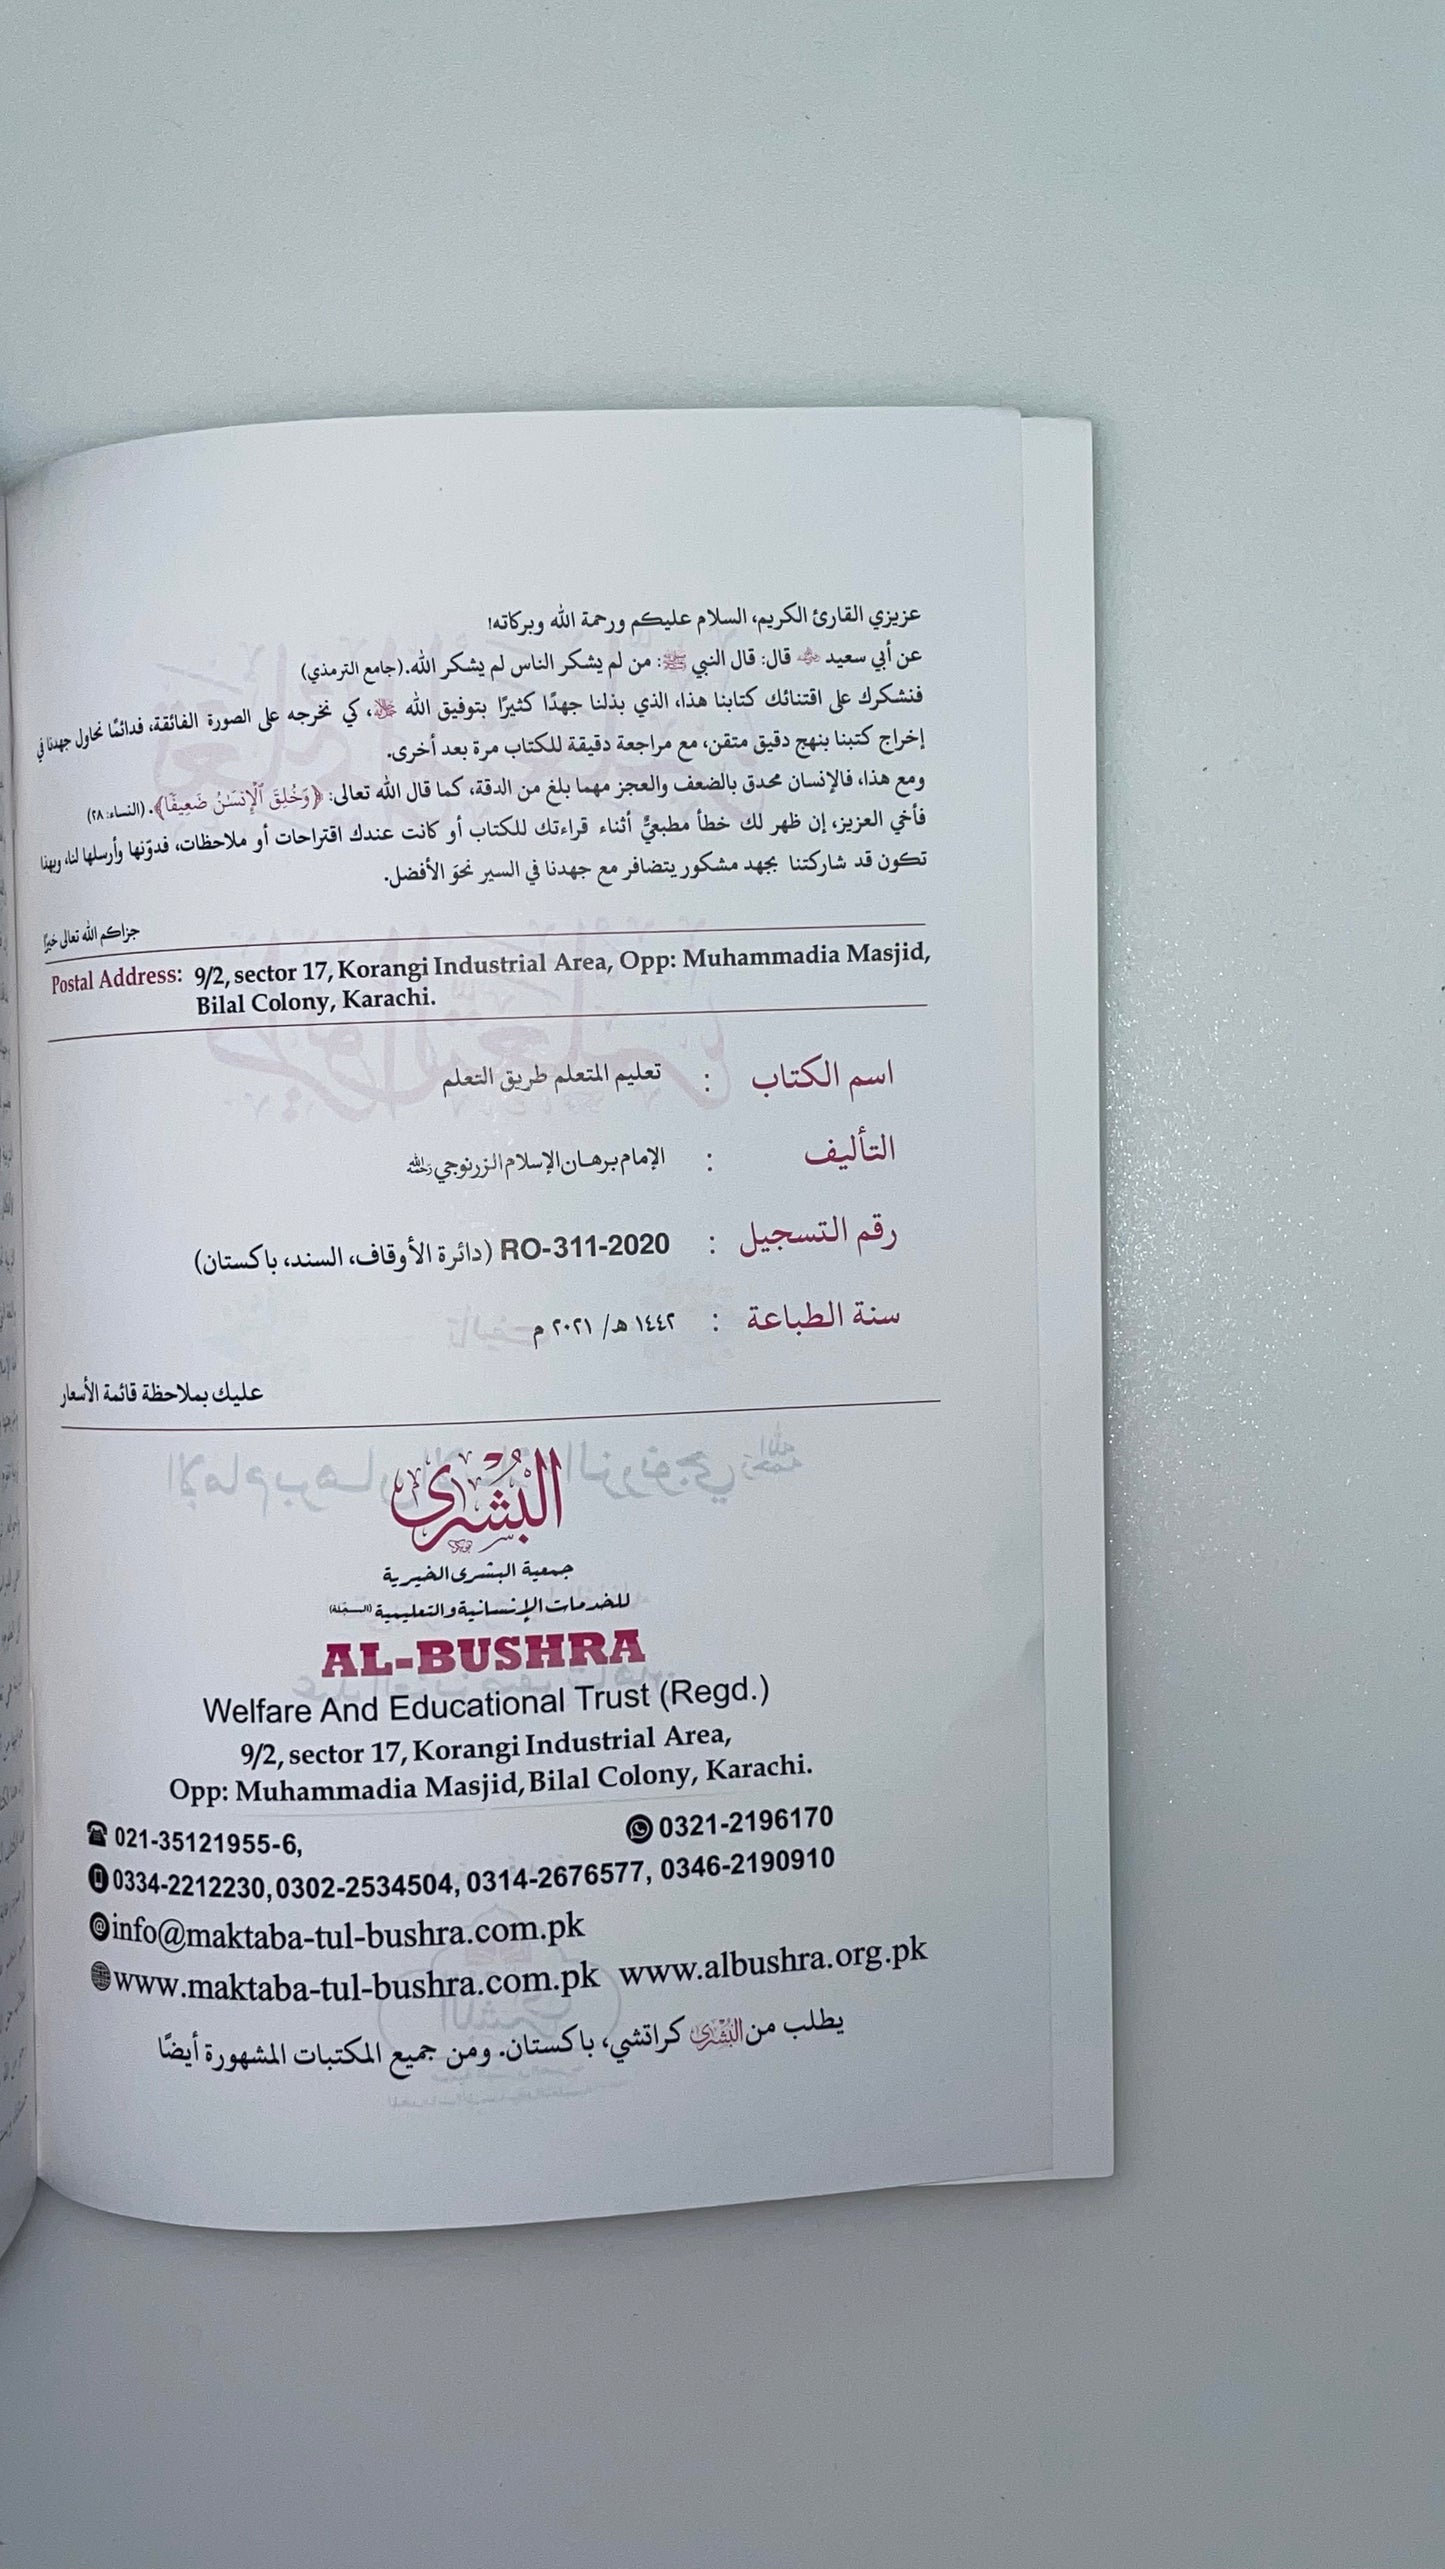 عزيزي القارئ الكريم، السلام عليكم ورحمة الله وبركاته!
عن أبي سعيد ﷺ قال: قال النبي ﷺ: من لم يشكر الناس لم يشكر الله. (جامع الترمذي)
فنشكرك على اقتنائك كتابنا هذا، الذي بذلنا جهدًا كثيرًا بتوفيق الله ﷻ، كي نخرجه على الصورة الفائقة، فدائمًا نحاول جهدنا في
إخراج كتبنا بنهج دقيق متقن، مع مراجعة دقيقة للكتاب مرة بعد أخرى.
ومع هذا، فالإنسان محدق بالضعف والعجز مهما بلغ من الدقة، كما قال الله تعالى: ﴿وَخُلِقَ ٱلْإِنسَٰنُ ضَعِيفًا﴾. (النساء: ٢٨)
فأخي العزيز، إن ظهر لك خطأ مطبعيٌّ أثناء قراءتك للكتاب أو كانت عندك اقتراحات أو ملاحظات، فدوّنها وأرسلها لنا، وبهذا
تكون قد شاركتنا بجهد مشكور يتضافر مع جهدنا في السير نحوَ الأفضل.
جزاكم الله تعالى خيرًا
Postal Address: 9/2, sector 17, Korangi Industrial Area, Opp: Muhammadia Masjid,
Bilal Colony, Karachi.
اسم الكتاب : تعليم المتعلم طريق التعلم
التأليف : الإمام برهان الإسلام الزرنوجي رحمه الله
رقم التسجيل : RO-311-2020 (دائرة الأوقاف، السند، باكستان)
سنة الطباعة : ١٤٤٢ هـ/ ٢٠٢١ م
عليك بملاحظة قائمة الأسعار
البُشرى
جمعية البشرى الخيرية
للخدمات الإنسانية والتعليمية (المسجّلة)
AL-BUSHRA
Welfare And Educational Trust (Regd.)
9/2, sector 17, Korangi Industrial Area,
Opp: Muhammadia Masjid, Bilal Colony, Karachi.
021-35121955-6, 0321-2196170
0334-2212230, 0302-2534504, 0314-2676577, 0346-2190910
info@maktaba-tul-bushra.com.pk
www.maktaba-tul-bushra.com.pk www.albushra.org.pk
يطلب من البُشرى كراتشي، باكستان. ومن جميع المكتبات المشهورة أيضًا